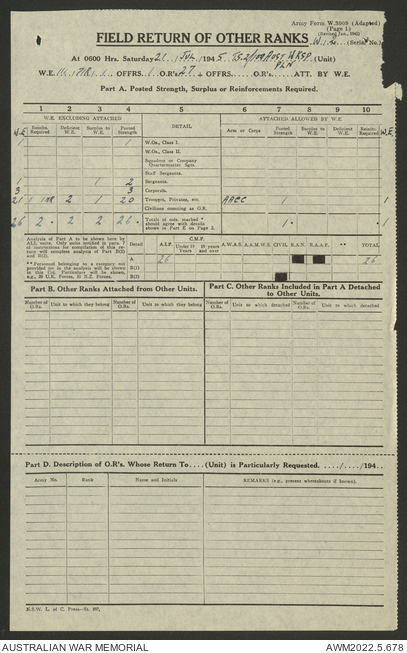 Army Form W.3009 (Adapted)
(Page 1)
(Revised Jan., 1945)
FIELD RETURN OF OTHER RANKS (Serial No.)
At 0600 Hrs. Saturday 21 1945 (Unit)
W.E. OFFRS. O.R's. 27 + OFFRS. O.R's. ATT. BY W.E.
Part A. Posted Strength, Surplus or Reinforcements Required.
1 2 3 4 5 6 7 8 9 10
W.E. EXCLUDING ATTACHED DETAIL ATTACHED ALLOWED BY W.E.
W.E. Reinfs. Required Deficient W.E. Surplus to W.E. Posted Strength Arm or Corps Posted Strength Surplus to W.E. Deficient W.E. Reinfs. Required W.E.
1 1 W.Os., Class I.
W.Os., Class II.
Squadron or Company Quartermaster Sgts.
Staff Sergeants.
1 1 2 Sergeants.
3 3 Corporals.
21 2 1 20 Troopers, Privates, etc. AACC 1 1
Civilians counting as O.R.
26 2 2 2 26 Totals of cols. marked * should agree with details shown in Part E on Page 2. 1 1
Analysis of Part A to be shown here by
ALL units.
Detail A.I.F. C.M.F. Under 19 Years 19 years and over A.W.A.S. A.A.M.W.S. CIVIL R.A.N. R.A.A.F. ** TOTAL
A. 26 26
B(1)
B(2)
**Personnel belonging to a category not
provided for in the analysis will be shown
in this Col. Particulars will be shown,
e.g., 26 U.K. Forces, 10 N.Z. Forces.
Part B. Other Ranks Attached from Other Units. Part C. Other Ranks Included in Part A Detached to Other Units.
Number of O.Rs. Unit to which they belong Number of O.Rs. Unit to which they belong Number of O.Rs. Unit to which detached Number of O.Rs. Unit to which detached
Part D. Description of O.R's. Whose Return To.... (Unit) is Particularly Requested. ..../..../194..
Army No. Rank Name and Initials REMARKS (e.g., present whereabouts if known).
AUSTRALIAN WAR MEMORIAL AWM2022.5.678